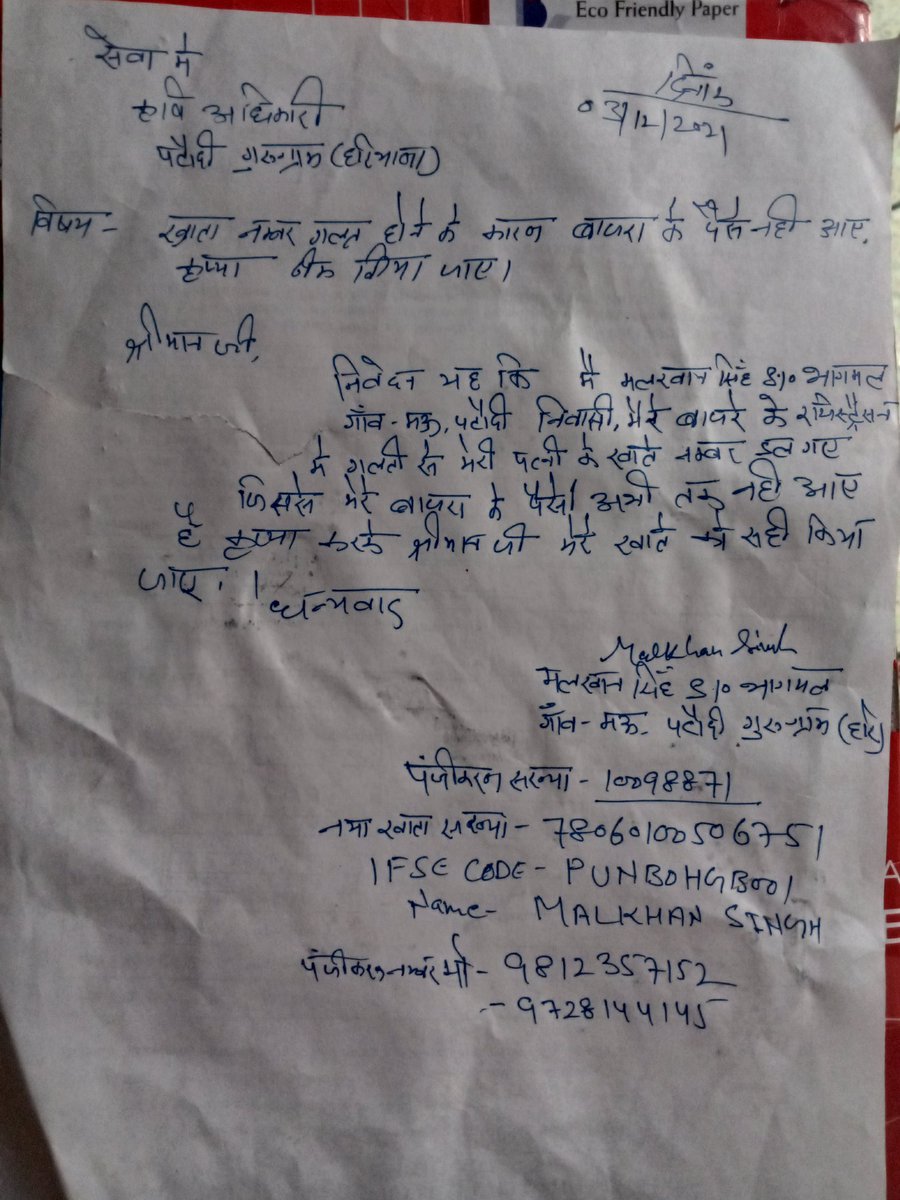 Eco Friendly Paper
सेवा मे
दिनांक
कृषि अधिकारी
03/12/2021
पटौदी गुरुग्राम (हरियाना)
विषय - खाता नम्बर गलत होने के कारण बाजरा के पैसे नही आए,
कृप्या ठीक किया जाए।
श्रीमान जी,
निवेदन यह कि मै मलखान सिंह S/o भागमल
गाँव - मऊ, पटौदी निवासी, मेरे बाजरे के रजिस्ट्रैसन
मे गलती से मेरी पत्नी के खाते नम्बर डल गए
जिससे मेरे बाजरा के पैसे अभी तक नही आए
है कृप्या करके श्रीमान जी मेरे खाते को सही किया
जाए। ।
धन्यवाद
Malkhan Singh
मलखान सिंह S/o भागमल
गाँव - मऊ. पटौदी गुरुग्राम (हरि)
पंजीकरन सख्या - 10098871
नया खाता सख्या - 78060100506751
IFSE CODE - PUNB0HGB001
Name - MALKHAN SINGH
पंजीकरन नम्बर मो - 9812357152
- 9728144145